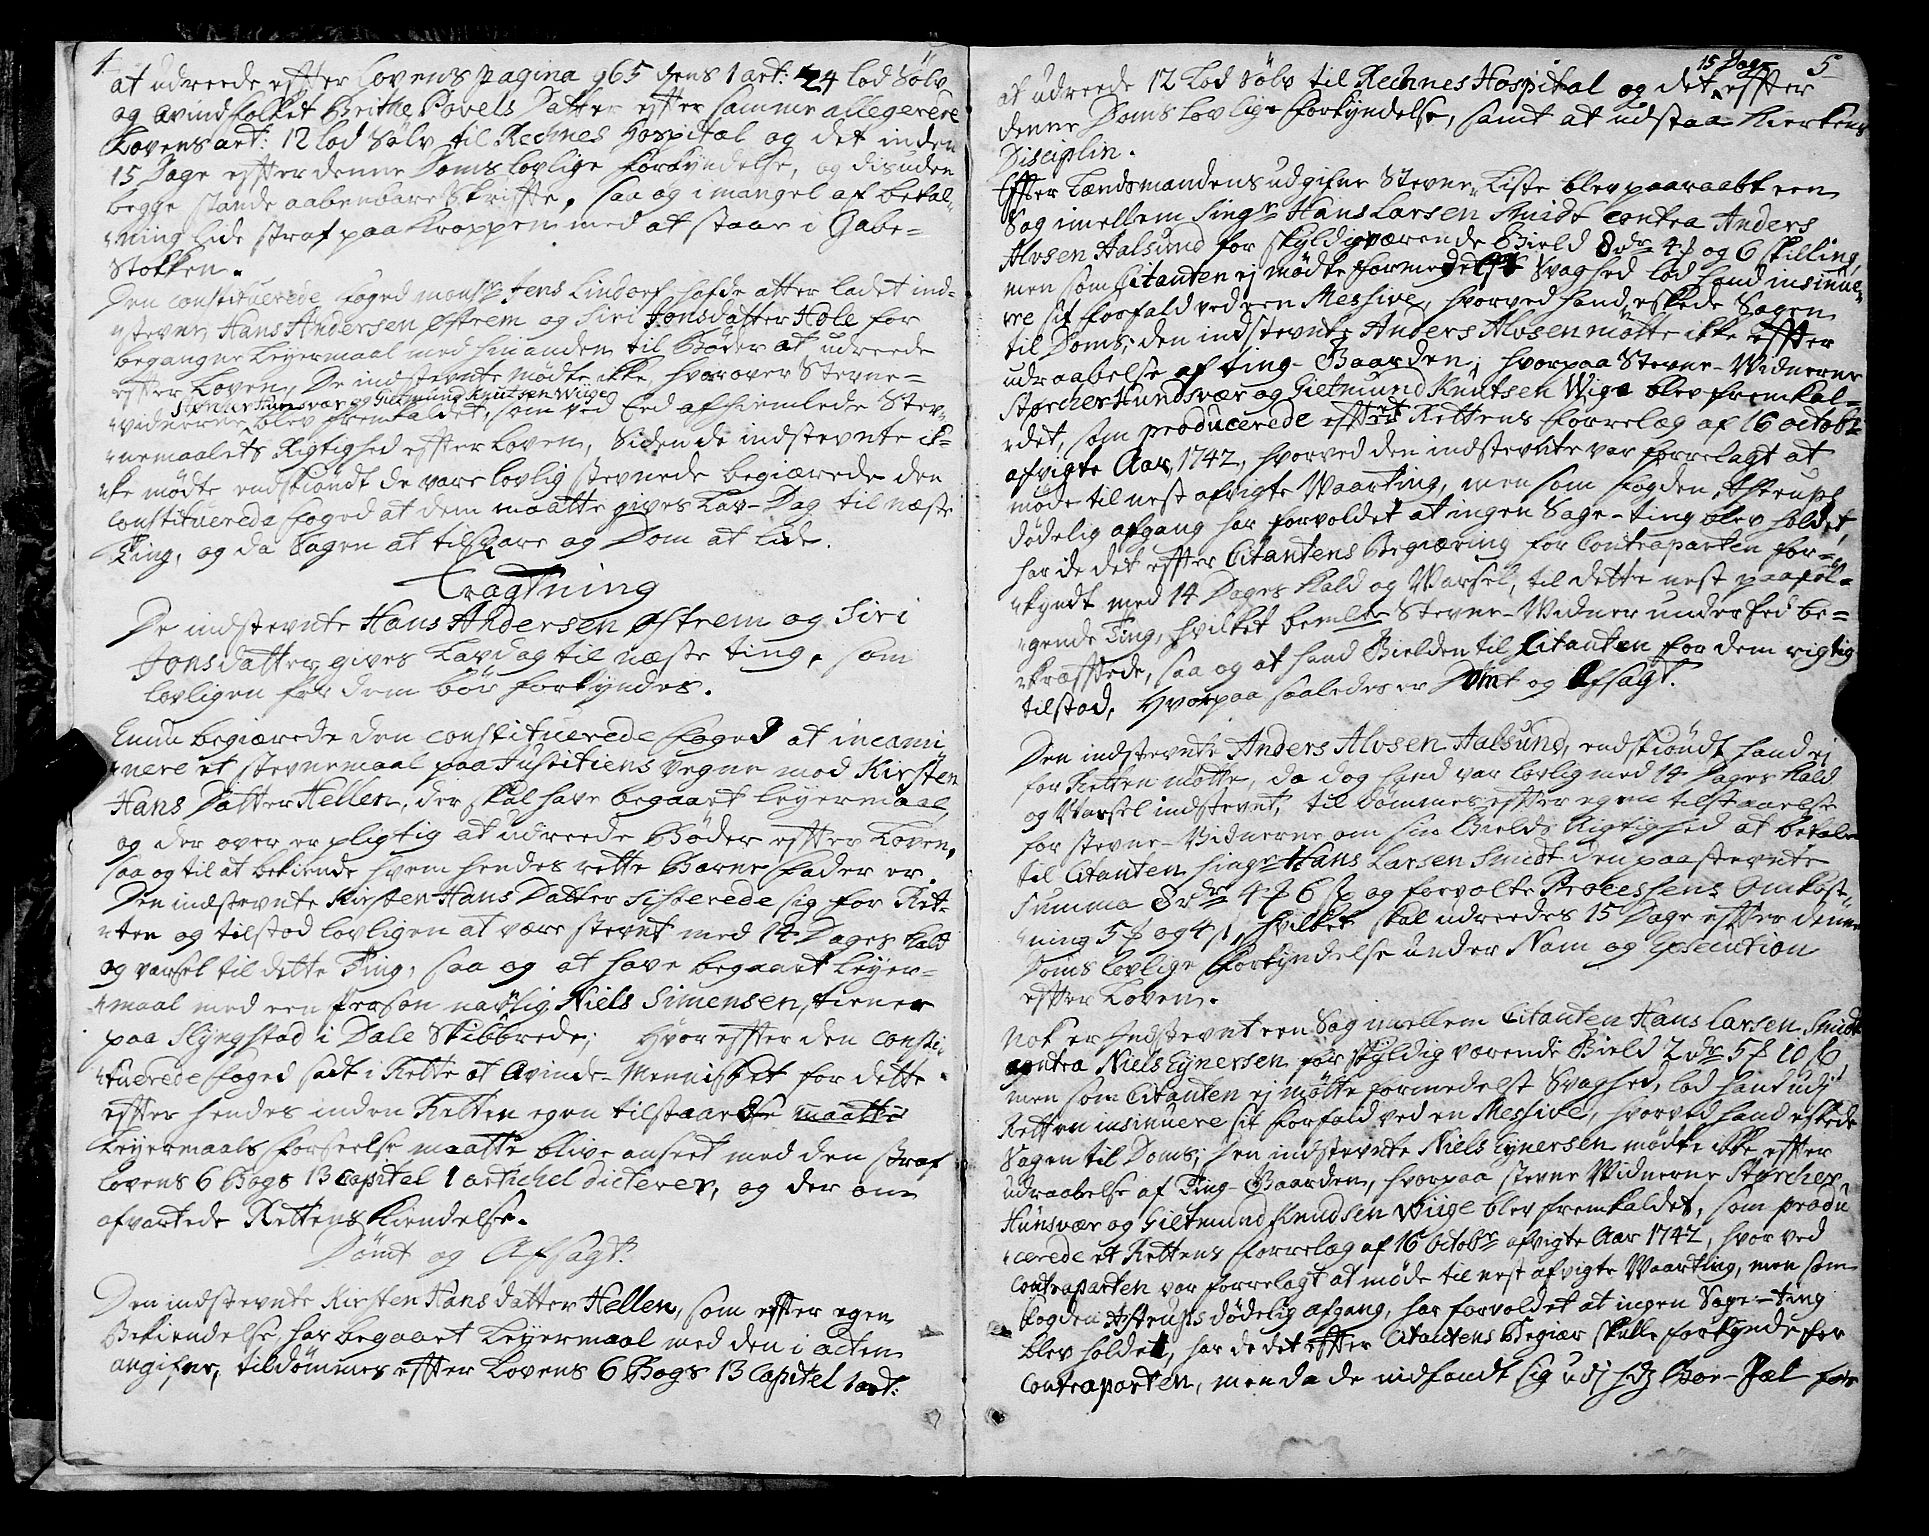 4
at udreede effter Lovens pagina 965 dens 1 art: 24 lod Sølv
og Qvindfolket Brithe Povels Datter effter samme allegerede
Lovens art: 12 lod Sølv til Rechnes Hospital og det inden
15 Dage effter denne Doms lovlige forkyndelse, og disuden
begge stande aabenbare Skriffte, saa og i mangel af betal-
ning lide straf paa Kroppen med at staae i Gabe-
Stokken.
Den constituerede foged monsr Jens Lindorf hafde atter ladet ind-
stevne Hans Andersen Østrem og Siri Jonsdatter Hole for
begangne Leyermaal med hinanden til Bøder at udreede
effter Loven, De indstevnte mødte ikke, hvorover Stevne-
Størcker Hunsvær og Gietmund Knutsen Wiige
vidnerne blev fremkaldet, som ved Eed afhiemlede Stev-
nemaalets Rigtighed effter Loven, Siden de indstevnte ik-
ke mødte endskiøndt de vare lovlig stevnede begiærede den
constituerede foged at dem maatte gives Lav-Dag til næste
Ting, og da Sagen at tilsvare og Dom at lide.
Eragtning
De indstevnte Hans Andersen Østrem og Siri
Jonsdatter gives Lavdag til næste ting, som
lovligen for dem bør forkyndes.
Ennu begiærede den constituerede foged at incami-
nere et stevnemaal paa Justitiens vegne mod Kirsten
Hans Datter Hellen, der skal have begaaet leyermaal,
og der over er pligtig at udreede Bøder effter Loven,
saa og til at bekiende hvem hendes rette Barne fader er.
Den indstevnte Kirsten Hans Datter sisterede sig for Ret-
ten og tilstod lovligen at være stevnt med 14 Dages kald
og varsel til dette Ting, saa og at have begaaet Leyer-
maal med een Person navnlig Niels Simensen, tiener
paa Slyngstad i Dale Skibbrede; Hvoreffter den consti-
tuerede foged satt i Rette at Qvinde-Mennisket for dette
effter hendes inden Retten egen tilstaaelse maatte
Leyermaals forseelse maatte blive anseet med den straf
Lovens 6 Bogs 13 Capitel 1 artichel dicterer, og der om
afvartede Rettens Kiendelse.
Dømt og Afsagt.
Den indstevnte Kirsten Hans datter Hellen, som effter egen
Bekiendelse, har begaaet Leyermaal med den i acten
angifne, tildømmes effter Lovens 6 Bogs 13 Capitel 1 art:
5
15 Dage
at udreede 12 Lod Sølv til Rechnes Hospital og det effter
denne Doms Lovlige forkyndelse, samt at udstaa Kierkens
Disciplin.
Effter Lændsmandens udgifne Stevne-Liste blev paaraabt een
Sag imellem Singr Hans Larsen Smidt Contra Anders
Alvsen Aalsund for skyldigværende Gield 8 dr 4 ƒ og 6 skilling,
men som Citanten ej mødte formedelst Svaghed lod hand insinue-
re sit forfald ved een Messive, hvorved hand eskede Sagen
til Doms; den indstevnte Anders Alvsen møtte ikke effter
udraabelse af ting-Gaarden, hvorpaa Stevne-Vidnerne
Størcher Hundsvær og Gietmund Knutsen Wige blev fremkal-
det, som producerede effter Rettens forrelæg af 16 octobr
afvigte Aar 1742, hvorved den indstevnte var forrelagt at
møde til nest afvigte Vaarting, men som fogden Astrups
dødelig afgang har forvoldet at ingen Sage-ting blev holdet,
har de det effter Citantens Begiæring for Contraparten for-
kyndt med 14 Dages kald og Varsel, til dette nest paaføl-
gende Ting, hvilket bemlte Stevne-Vidner under Eed be-
kræfftede, saa og at hand Gielden til Citanten for dem rigtig
tilstod, Hvorpaa saaledes er Dømt og Afsagt.
Den indstevnte Anders Alvsen Aalsund, endskiøndt hand ej
for Retten møtte, da dog hand var lovlig med 14 Dages kald
og Varsel indstevnt, til dømmes effter egen tilstaaelse
for stevne-Vidnerne om sin Gields Rigtighed at betale
til Citanten Singr Hans Larsen Smidt den paastevnte
Summa 8 dr 4 ƒ 6 ſs og forvolte Processens Omkost-
ning 5 ƒ og 4 ſs, hvilket skal udreedes 15 Dage effter denne
Doms lovlige forkyndelse under Nam og Execution
effter Loven.
Nok er Indstevnt een Sag imellem Citanten Hans Larsen Smidt
contra Niels Eynersen for skyldig værende Gield 2 dr 5 ƒ 10 ſs
men som Citanten ej møtte formedelst Svaghed, lod hand udj
Retten insinuere sit forfald ved en Messive, hvorved hand eskede
Sagen til Doms; Den indstevnte Niels Eynersen mødte ikke effter
udraabelse af Ting-Gaarden, hvorpaa stevne Vidnerne Størcher
Hunsvær og Gietmund Knudsen Wiige blev fremkaldet, som produ-
cerede et Rettens forrelæg af 16 octobr afvigte Aar 1742, hvorved
Contraparten var forrelagt at møde til nest afvigte Vaarting, men som
fogden Astrups dødelig afgang, har forvoldet at ingen Sage-ting
blev holdet, har de det effter Citantens Begiær skulle forkynde for
Contraparten, men da de indfandt sig udj hds Boe-Pæl for